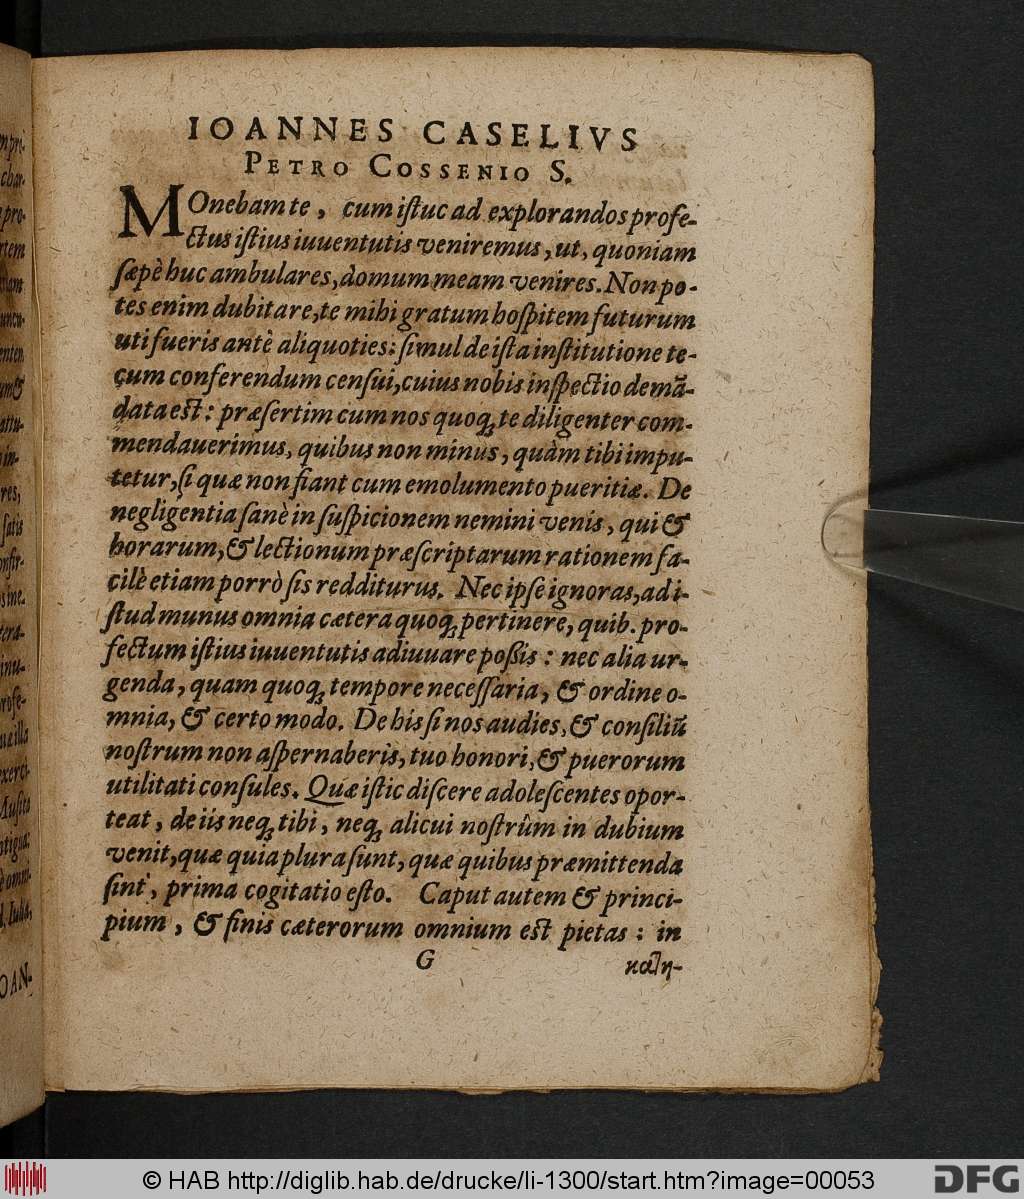 IOANNES CASELIVS
PETRO COSSENIO S.
MOnebam te, cum istuc ad explorandos profe-
ctus istius iuuentutis veniremus, ut, quoniam
sæpè huc ambulares, domum meam venires. Non po-
tes enim dubitare, te mihi gratum hospitem futurum
uti fueris antè aliquoties: simul de ista institutione te-
cum conferendum censui, cuius nobis inspectio demã-
data est: præsertim cum nos quoq; te diligenter com-
mendauerimus, quibus non minus, quàm tibi impu-
tetur, si quæ non fiant cum emolumento pueritiæ. De
negligentia sanè in suspicionem nemini venis, qui &
horarum, & lectionum præscriptarum rationem fa-
cilè etiam porrò sis redditurus. Nec ipse ignoras, ad i-
stud munus omnia cætera quoq; pertinere, quib. pro-
fectum istius iuuentutis adiuuare poßis: nec alia ur-
genda, quam quoq; tempore necessaria, & ordine o-
mnia, & certo modo. De his si nos audies, & consiliũ
nostrum non aspernaberis, tuo honori, & puerorum
utilitati consules. Quæ istic discere adolescentes opor-
teat, de iis neq; tibi, neq; alicui nostrûm in dubium
venit, quæ quia plura sunt, quæ quibus præmittenda
sint, prima cogitatio esto. Caput autem & princi-
pium, & finis cæterorum omnium est pietas: in
G
κατη-
© HAB http://diglib.hab.de/drucke/li-1300/start.htm?image=00053
DFG